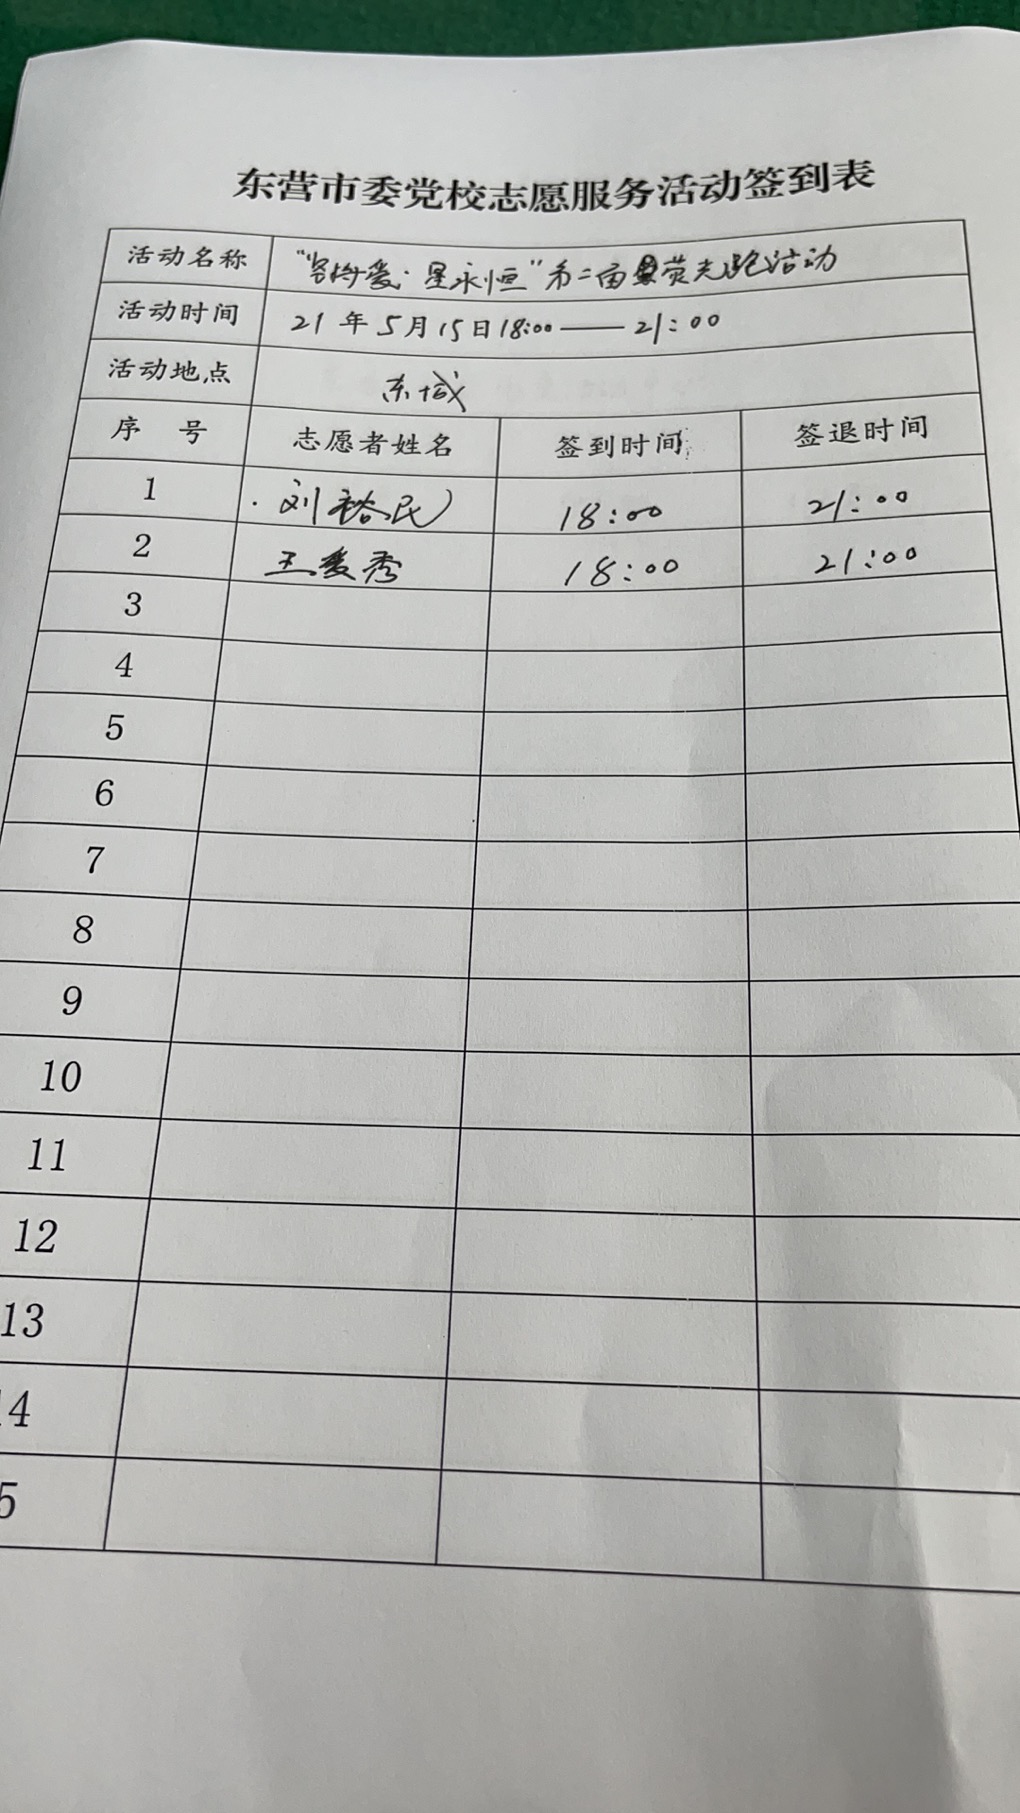 东营市委党校志愿服务活动签到表
活动名称 "爱·星永恒"第二届荧光跑活动
活动时间 21年5月15日18:00——21:00
活动地点 东城
序 号 志愿者姓名 签到时间 签退时间
1 刘裕民 18:00 21:00
2 王爱秀 18:00 21:00
3
4
5
6
7
8
9
10
11
12
13
14
5